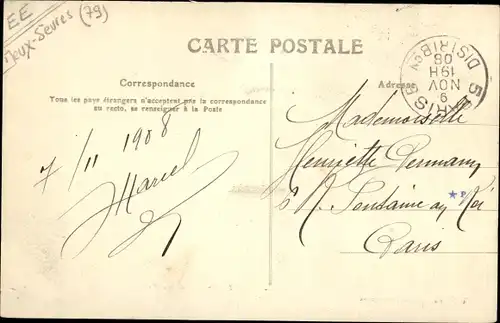 EE
Deux-Sèvres (79)
CARTE POSTALE
Correspondance
Tous les pays étrangers n'acceptent pas la correspondance
au recto, se renseigner à la Poste
Adresse
PARIS
DISTRIBON
19H
9
NOV
08
7/11 1908
Marcel
Mademoiselle
Henriette
6 R. Fontaine au Roi
Paris